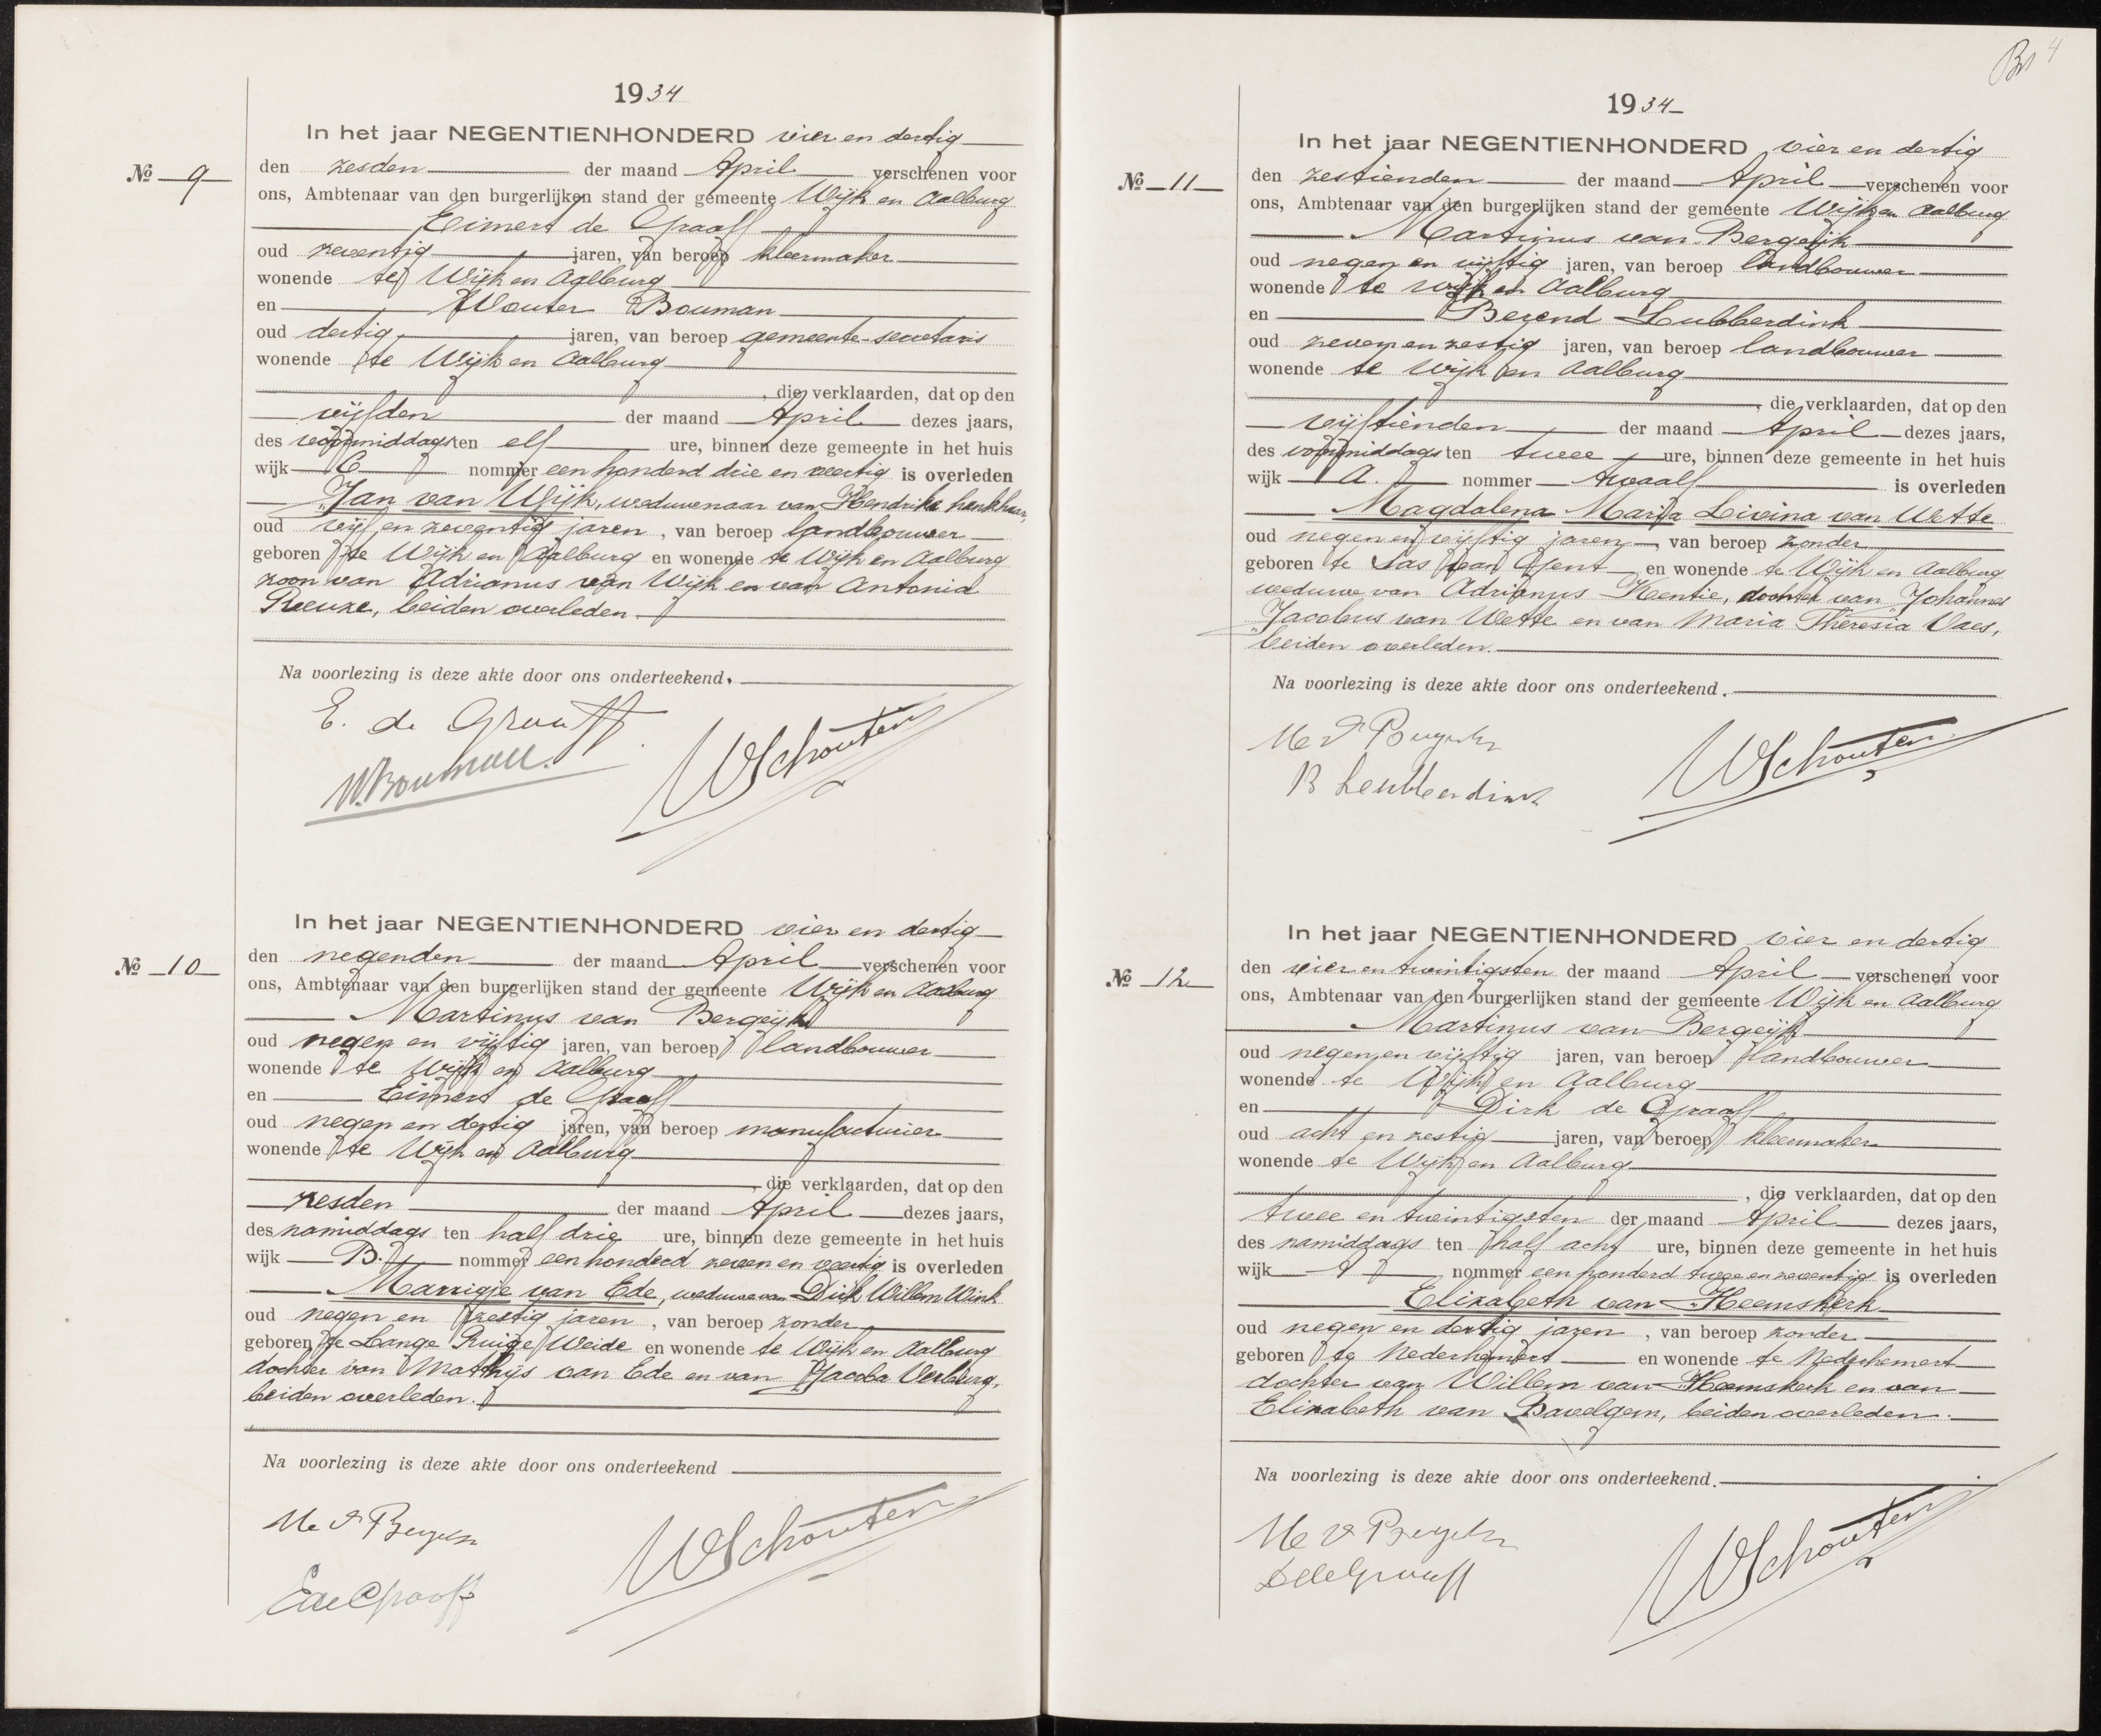 1934
In het jaar NEGENTIENHONDERD vier en dertig
No 9
den zesden der maand April verschenen voor
ons, Ambtenaar van den burgerlijken stand der gemeente Wijk en Aalburg
Eimert de Graaff
oud zeventig jaren, van beroep kleermaker
wonende te Wijk en Aalburg
en Wouter Bouman
oud dertig jaren, van beroep gemeente-secretaris
wonende te Wijk en Aalburg
, die verklaarden, dat op den
vijfden der maand April dezes jaars,
des voormiddags ten elf ure, binnen deze gemeente in het huis
wijk C nommer een honderd drie en veertig is overleden
Jan van Wijk, weduwenaar van Hendrika
oud vijf en zeventig jaren, van beroep landbouwer
geboren te Wijk en Aalburg en wonende te Wijk en Aalburg
zoon van Adrianus van Wijk en van Antonia
beiden overleden.
Na voorlezing is deze akte door ons onderteekend.
E. de Graaff
W. Bouman.
WSchouten
In het jaar NEGENTIENHONDERD vier en dertig
No 10
den negenden der maand April verschenen voor
ons, Ambtenaar van den burgerlijken stand der gemeente Wijk en Aalburg
Martinus van Bergeijk
oud negen en vijftig jaren, van beroep landbouwer
wonende te Wijk en Aalburg
en Eimert de Graaff
oud negen en dertig jaren, van beroep manufacturier
wonende te Wijk en Aalburg
, die verklaarden, dat op den
zesden der maand April dezes jaars,
des namiddags ten half drie ure, binnen deze gemeente in het huis
wijk B. nommer een honderd zeven en veertig is overleden
Marrigje van Ede, weduwe van Dirk Willem Wink
oud negen en zestig jaren, van beroep zonder
geboren te Lange Ruige Weide en wonende te Wijk en Aalburg
dochter van Matthijs van Ede en van Jacoba Verburg,
beiden overleden.
Na voorlezing is deze akte door ons onderteekend
M v Bergeijk
E de Graaff
WSchouten
4
1934
In het jaar NEGENTIENHONDERD vier en dertig
No 11
den zestienden der maand April verschenen voor
ons, Ambtenaar van den burgerlijken stand der gemeente Wijk en Aalburg
Martinus van Bergeijk
oud negen en vijftig jaren, van beroep landbouwer
wonende te Wijk en Aalburg
en Berend Lubberdink
oud zeven en zestig jaren, van beroep landbouwer
wonende te Wijk en Aalburg
, die verklaarden, dat op den
vijftienden der maand April dezes jaars,
des voormiddags ten twee ure, binnen deze gemeente in het huis
wijk A. nommer twaalf is overleden
Magdalena Maria Livina van Wette
oud negen en vijftig jaren, van beroep zonder
geboren te Sas van Gent en wonende te Wijk en Aalburg
weduwe van Adrianus Kentie, dochter van Johannes
Jacobus van Wette en van Maria Theresia Vaes,
beiden overleden.
Na voorlezing is deze akte door ons onderteekend.
M v Bergeijk
B Lubberdink
WSchouten
In het jaar NEGENTIENHONDERD vier en dertig
No 12
den vier en twintigsten der maand April verschenen voor
ons, Ambtenaar van den burgerlijken stand der gemeente Wijk en Aalburg
Martinus van Bergeijk
oud negen en vijftig jaren, van beroep landbouwer
wonende te Wijk en Aalburg
en Dirk de Graaff
oud acht en zestig jaren, van beroep kleermaker
wonende te Wijk en Aalburg
, die verklaarden, dat op den
twee en twintigsten der maand April dezes jaars,
des namiddags ten half acht ure, binnen deze gemeente in het huis
wijk A nommer een honderd twee en zeventig is overleden
Elizabeth van Heemskerk
oud negen en dertig jaren, van beroep zonder
geboren te Nederhemert en wonende te Nederhemert
dochter van Willem van Heemskerk en van
Elizabeth van Bavelgem, beiden overleden.
Na voorlezing is deze akte door ons onderteekend.
M v Bergeijk
D de Graaff
WSchouten